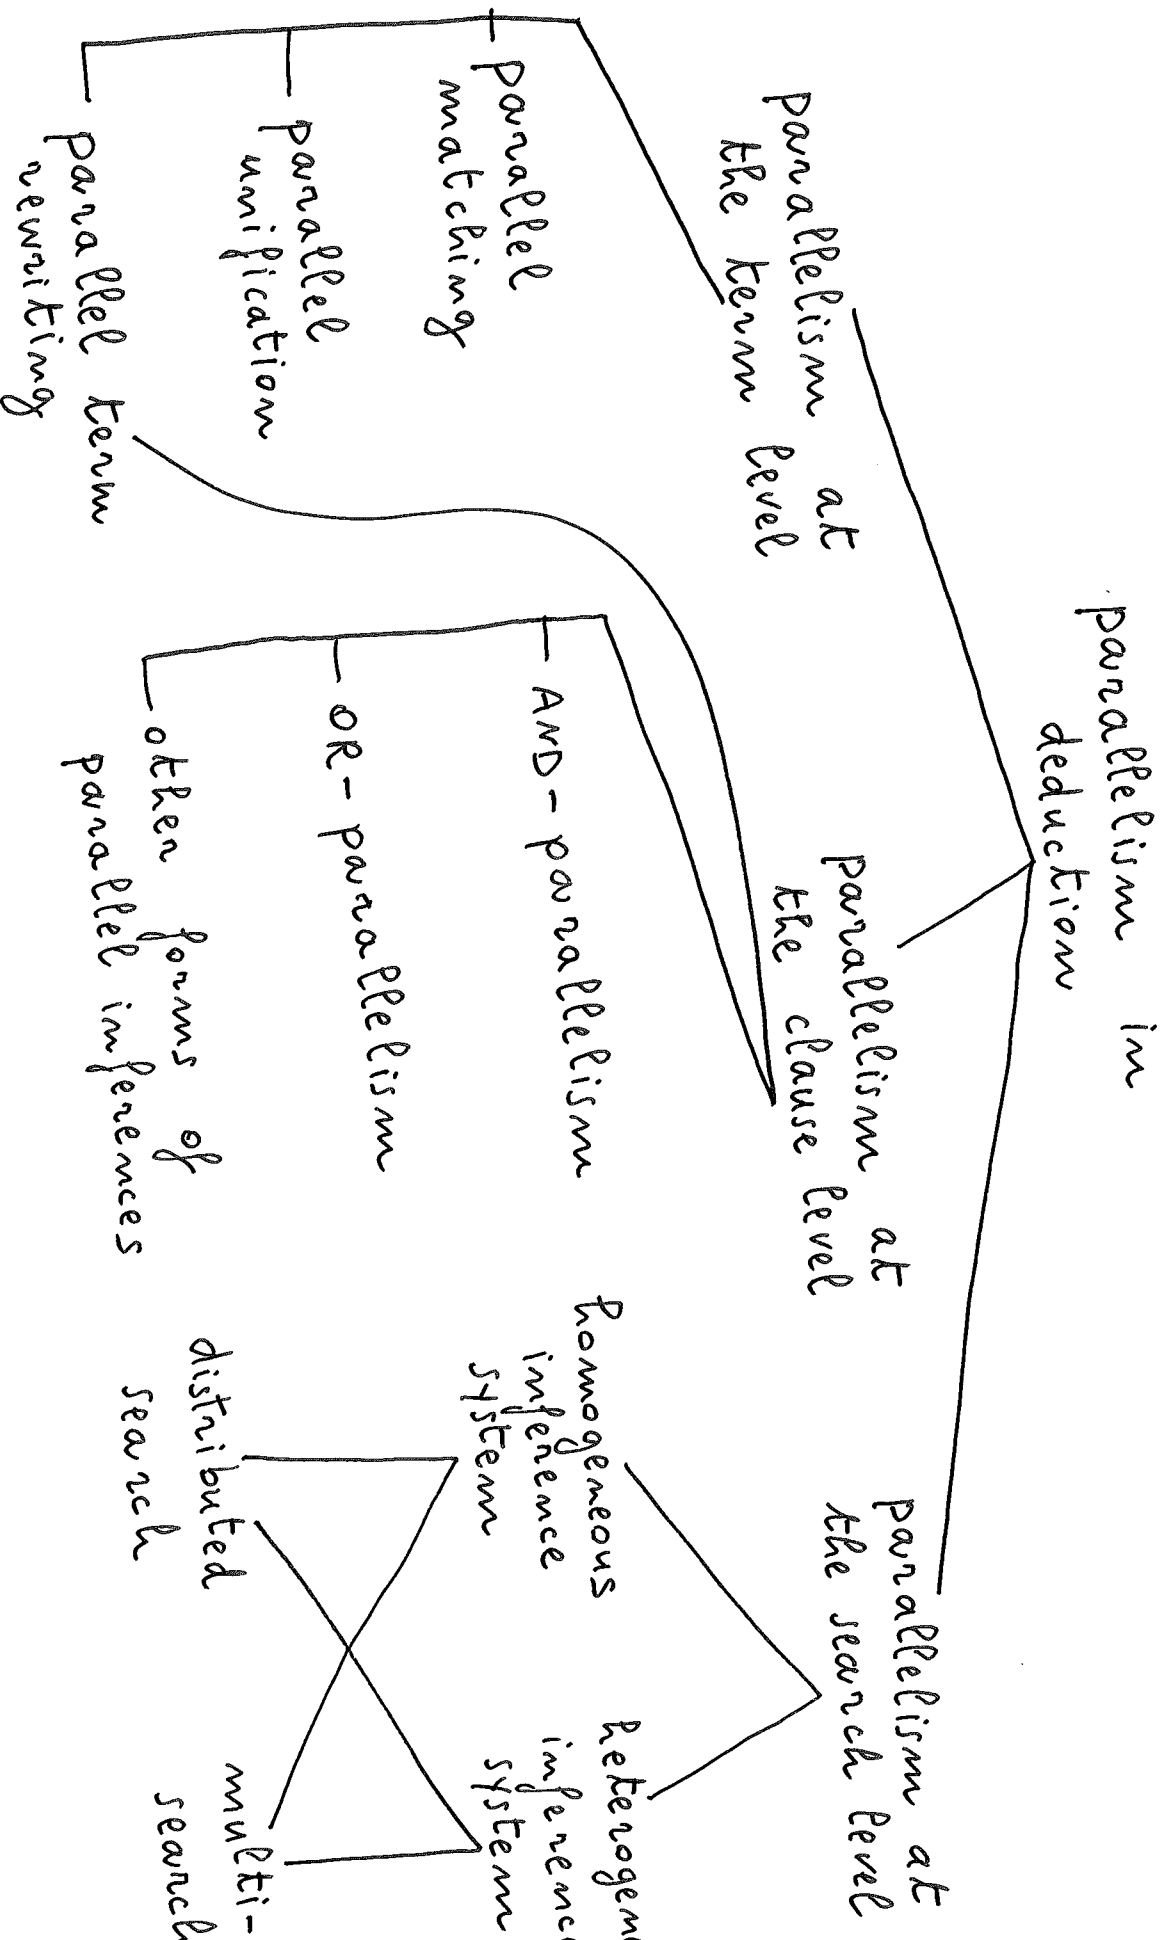 parallelism in
deduction
parallelism at
the term level
parallel
matching
parallel
unification
parallel term
rewriting
parallelism at
the clause level
AND-parallelism
OR-parallelism
other forms of
parallel inferences
parallelism at
the search level
homogeneous
inference
system
system
distributed
search
multi-
search